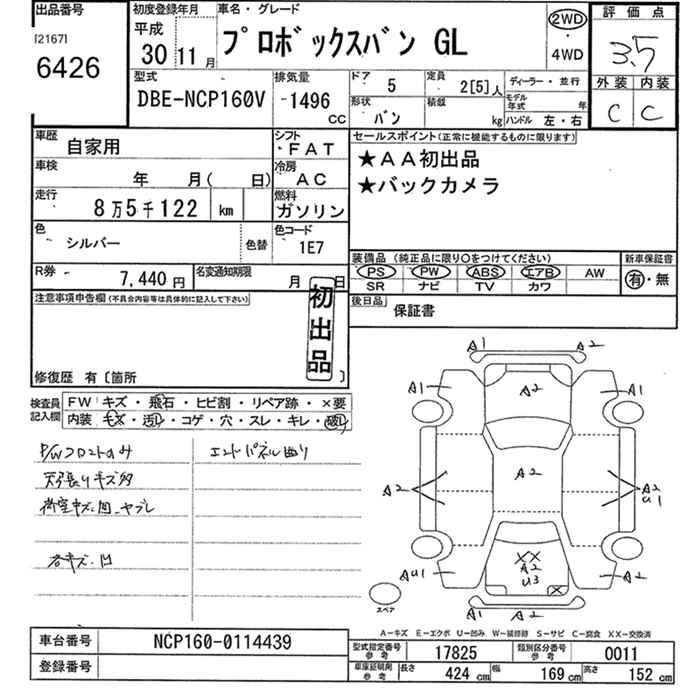 出品番号
[2167]
6426
初度登録年月
平成
30 11 月
車名・グレード
プロボックスバン GL
2WD
・
4WD
評価点
3.5
外装 内装
C C
型式
DBE-NCP160V
排気量
-1496
CC
ドア 5
定員 2[5]人
形状 バン
積載 kg
ディーラー・並行
モデル年式 年
ハンドル 左・右
車歴 自家用
シフト ・FAT
車検 年 月( 日)
冷房 AC
走行 8万5千122 km
燃料 ガソリン
色 シルバー
色替
色コード 1E7
R券 7,440 円
名変通知期限 月 日
セールスポイント(正常に機能するものに限ります)
★AA初出品
★バックカメラ
装備品 (純正品に限り○をつけてください)
PS PW ABS エアB AW
SR ナビ TV カワ
新車保証書
有・無
後日品 保証書
注意事項申告欄(不具合内容等は具体的に記入して下さい)
初出品
修復歴 有〔箇所 〕
検査員記入欄
FW キズ・飛石・ヒビ割・リペア跡・×要
内装 キズ・汚れ・コゲ・穴・スレ・キレ・破れ
P/Wフロントのみ
エンドパネル曲り
天張りキズ多
荷室キズ凹、ヤブレ
各キズ・凹
A1 A2
A1 A2 A1
A2 A2 A2
U1
XX
A2
U3
X
AU1 A2
A1 A2
スペア
A-キズ E-エクボ U-凹み W-補修跡 S-サビ C-腐食 XX-交換済
車台番号 NCP160-0114439
登録番号
型式指定番号 参考 17825
類別区分番号 参考 0011
車庫証明用 参考 長さ 424 cm 幅 169 cm 高さ 152 cm